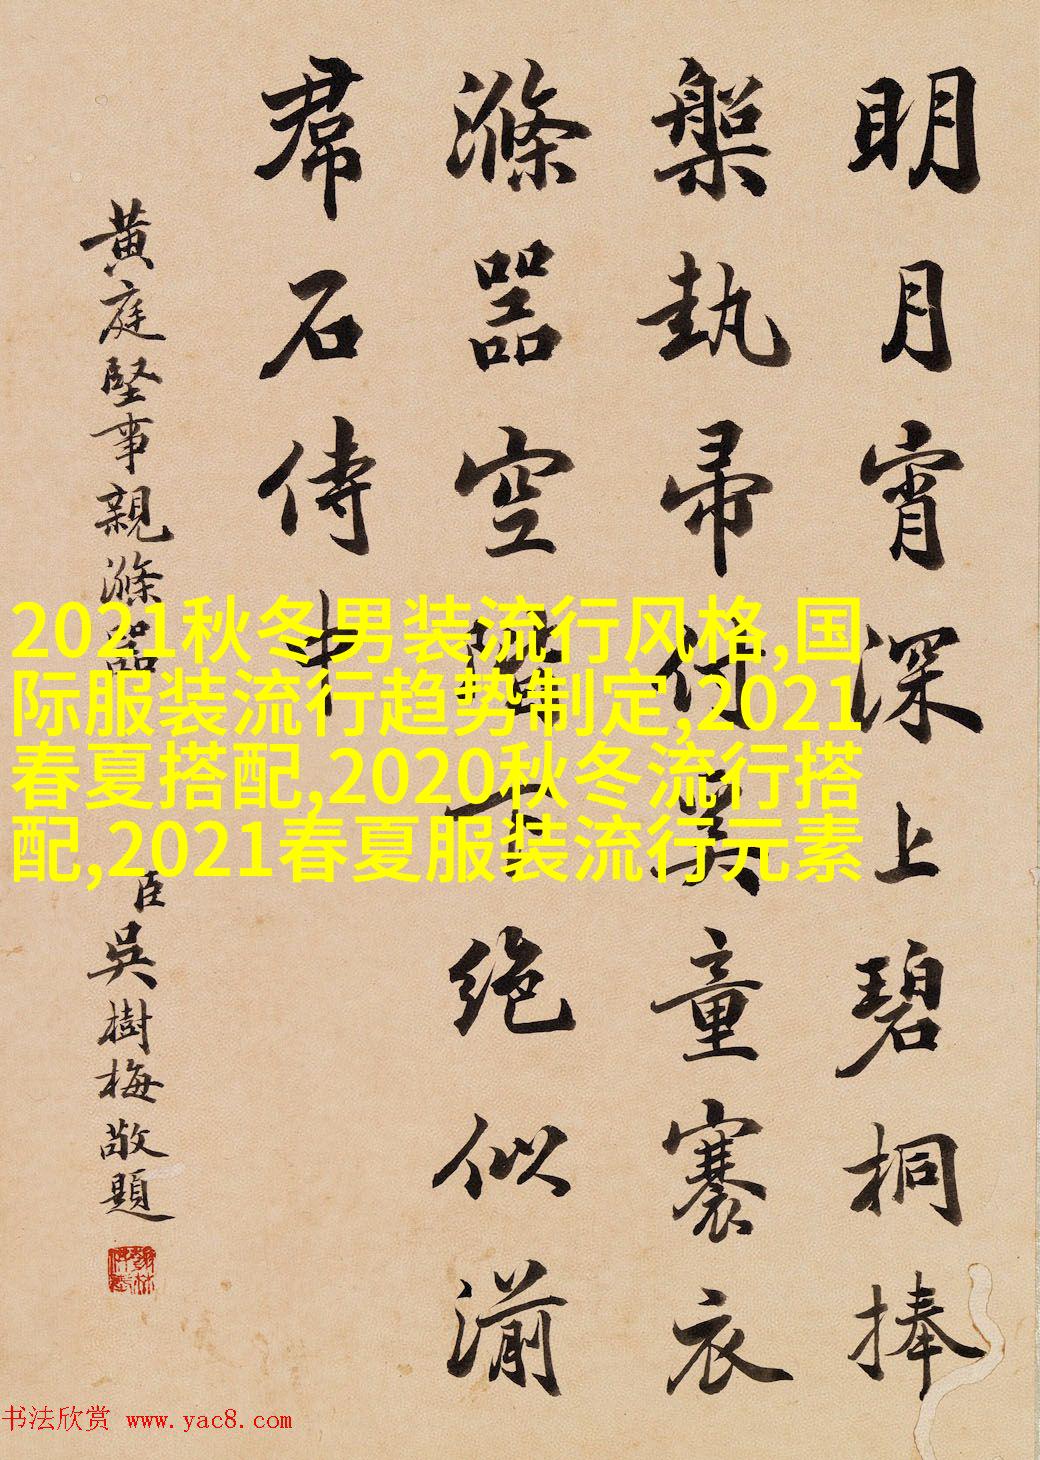 明月宵深上碧桐捧
槃執帚付奚童褰衣
滌器空階下絕似湔
帬石侍中
黃庭堅事親滌器
臣吳樹梅敬題
2021秋冬男装流行风格,国
际服装流行趋势制定,2021
春夏搭配,2020秋冬流行搭
配,2021春夏服装流行元素
书法欣赏 www.yac8.com